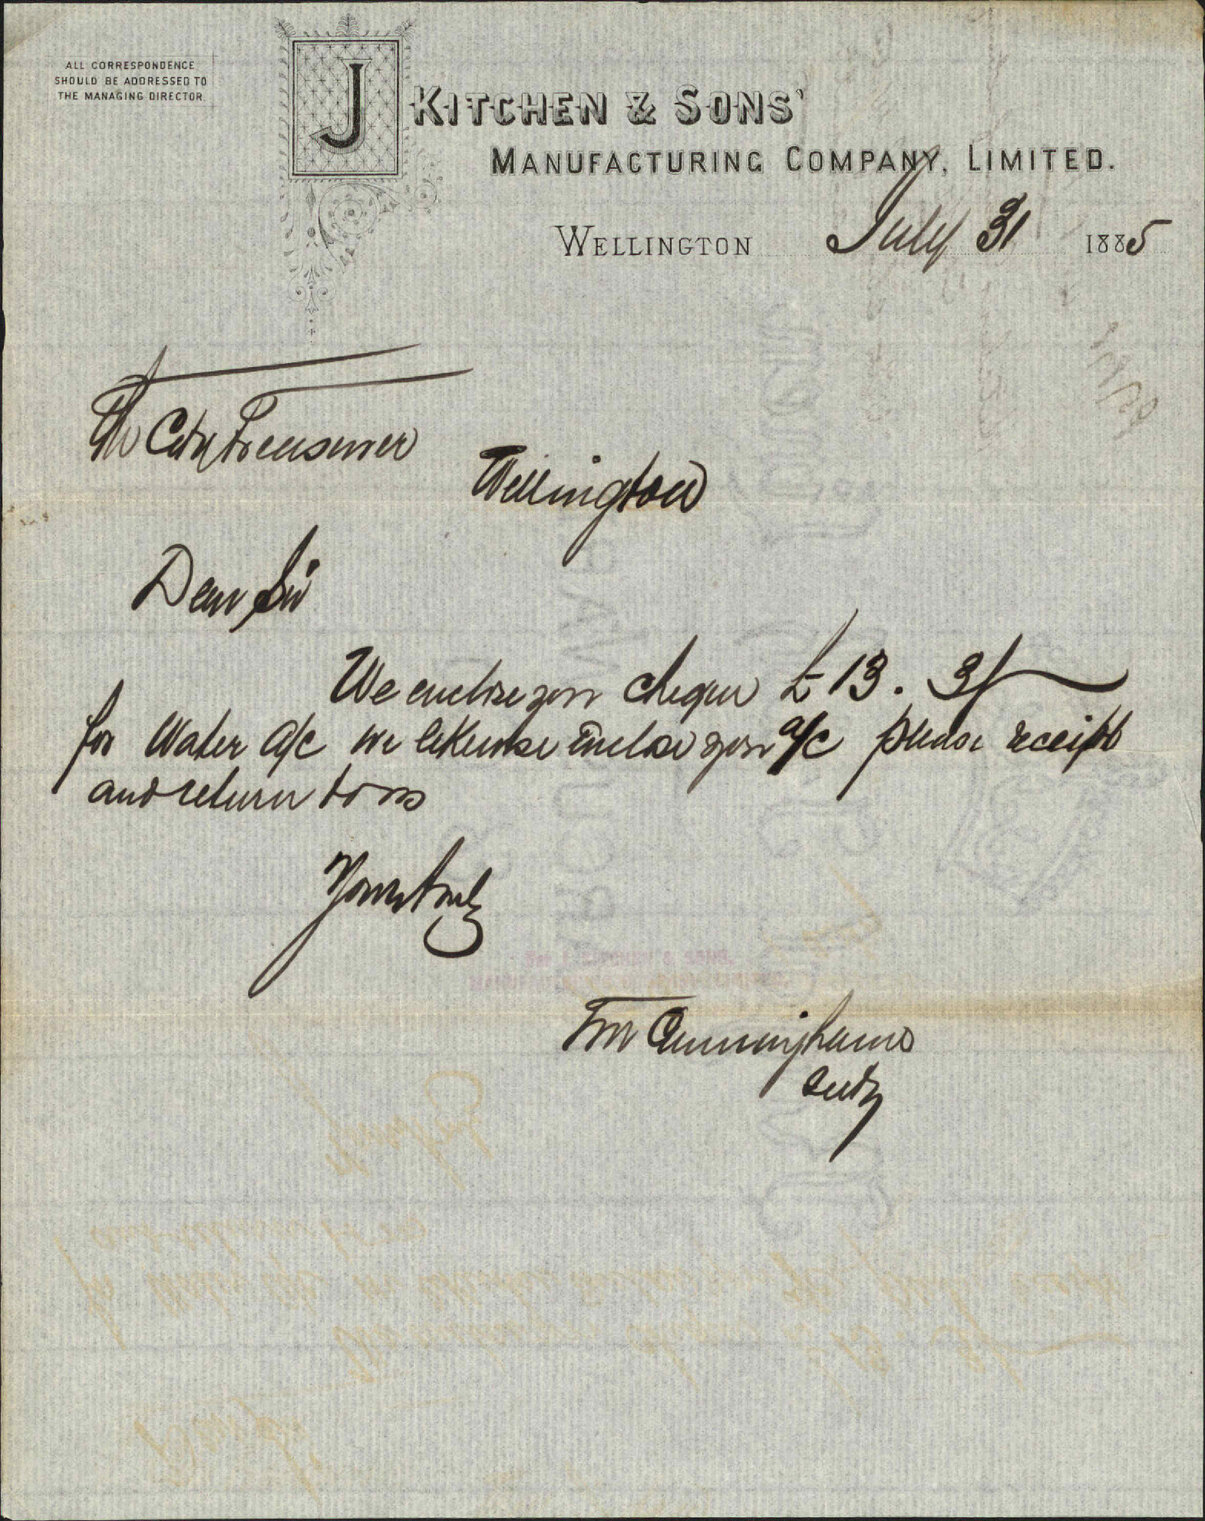 ALL CORRESPONDENCE
SHOULD BE ADDRESSED TO
THE MANAGING DIRECTOR.
J KITCHEN & SONS'
MANUFACTURING COMPANY, LIMITED.
WELLINGTON July 31 1885
The City Treasurer
Wellington
Dear Sir
We enclose you cheque £13. 3/
for Water a/c we likewise Enclose your a/c please receipt
and return to us
Yours truly
For J KITCHEN & SONS,
MANUFACTURING COMPANY LIMITED.
Cunningham